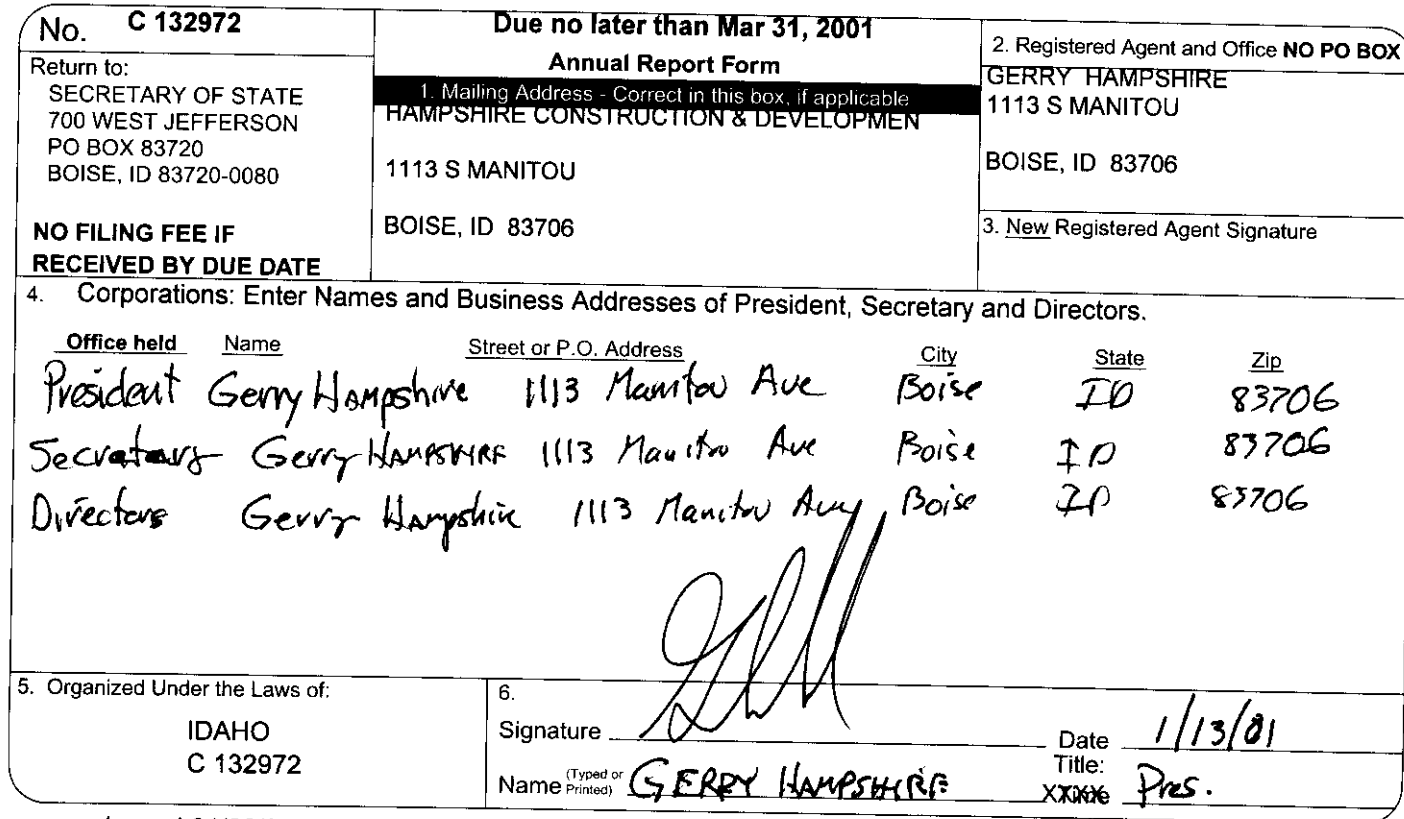 No. C 132972
Return to:
SECRETARY OF STATE
700 WEST JEFFERSON
PO BOX 83720
BOISE, ID 83720-0080
NO FILING FEE IF
RECEIVED BY DUE DATE
Due no later than Mar 31, 2001
Annual Report Form
1. Mailing Address - Correct in this box, if applicable
HAMPSHIRE CONSTRUCTION & DEVELOPMEN
1113 S MANITOU
BOISE, ID 83706
2. Registered Agent and Office NO PO BOX
GERRY HAMPSHIRE
1113 S MANITOU
BOISE, ID 83706
3. New Registered Agent Signature
4. Corporations: Enter Names and Business Addresses of President, Secretary and Directors.
Office held Name Street or P.O. Address City State Zip
President Gerry Hampshire 1113 Manitou Ave Boise ID 83706
Secretary Gerry HAMPSHIRE 1113 Manitou Ave Boise ID 83706
Directors Gerry Hampshire 1113 Manitou Ave Boise ID 83706
5. Organized Under the Laws of:
IDAHO
C 132972
6.
Signature Date 1/13/01
Name (Typed or Printed) GERRY HAMPSHIRE Title: Pres.